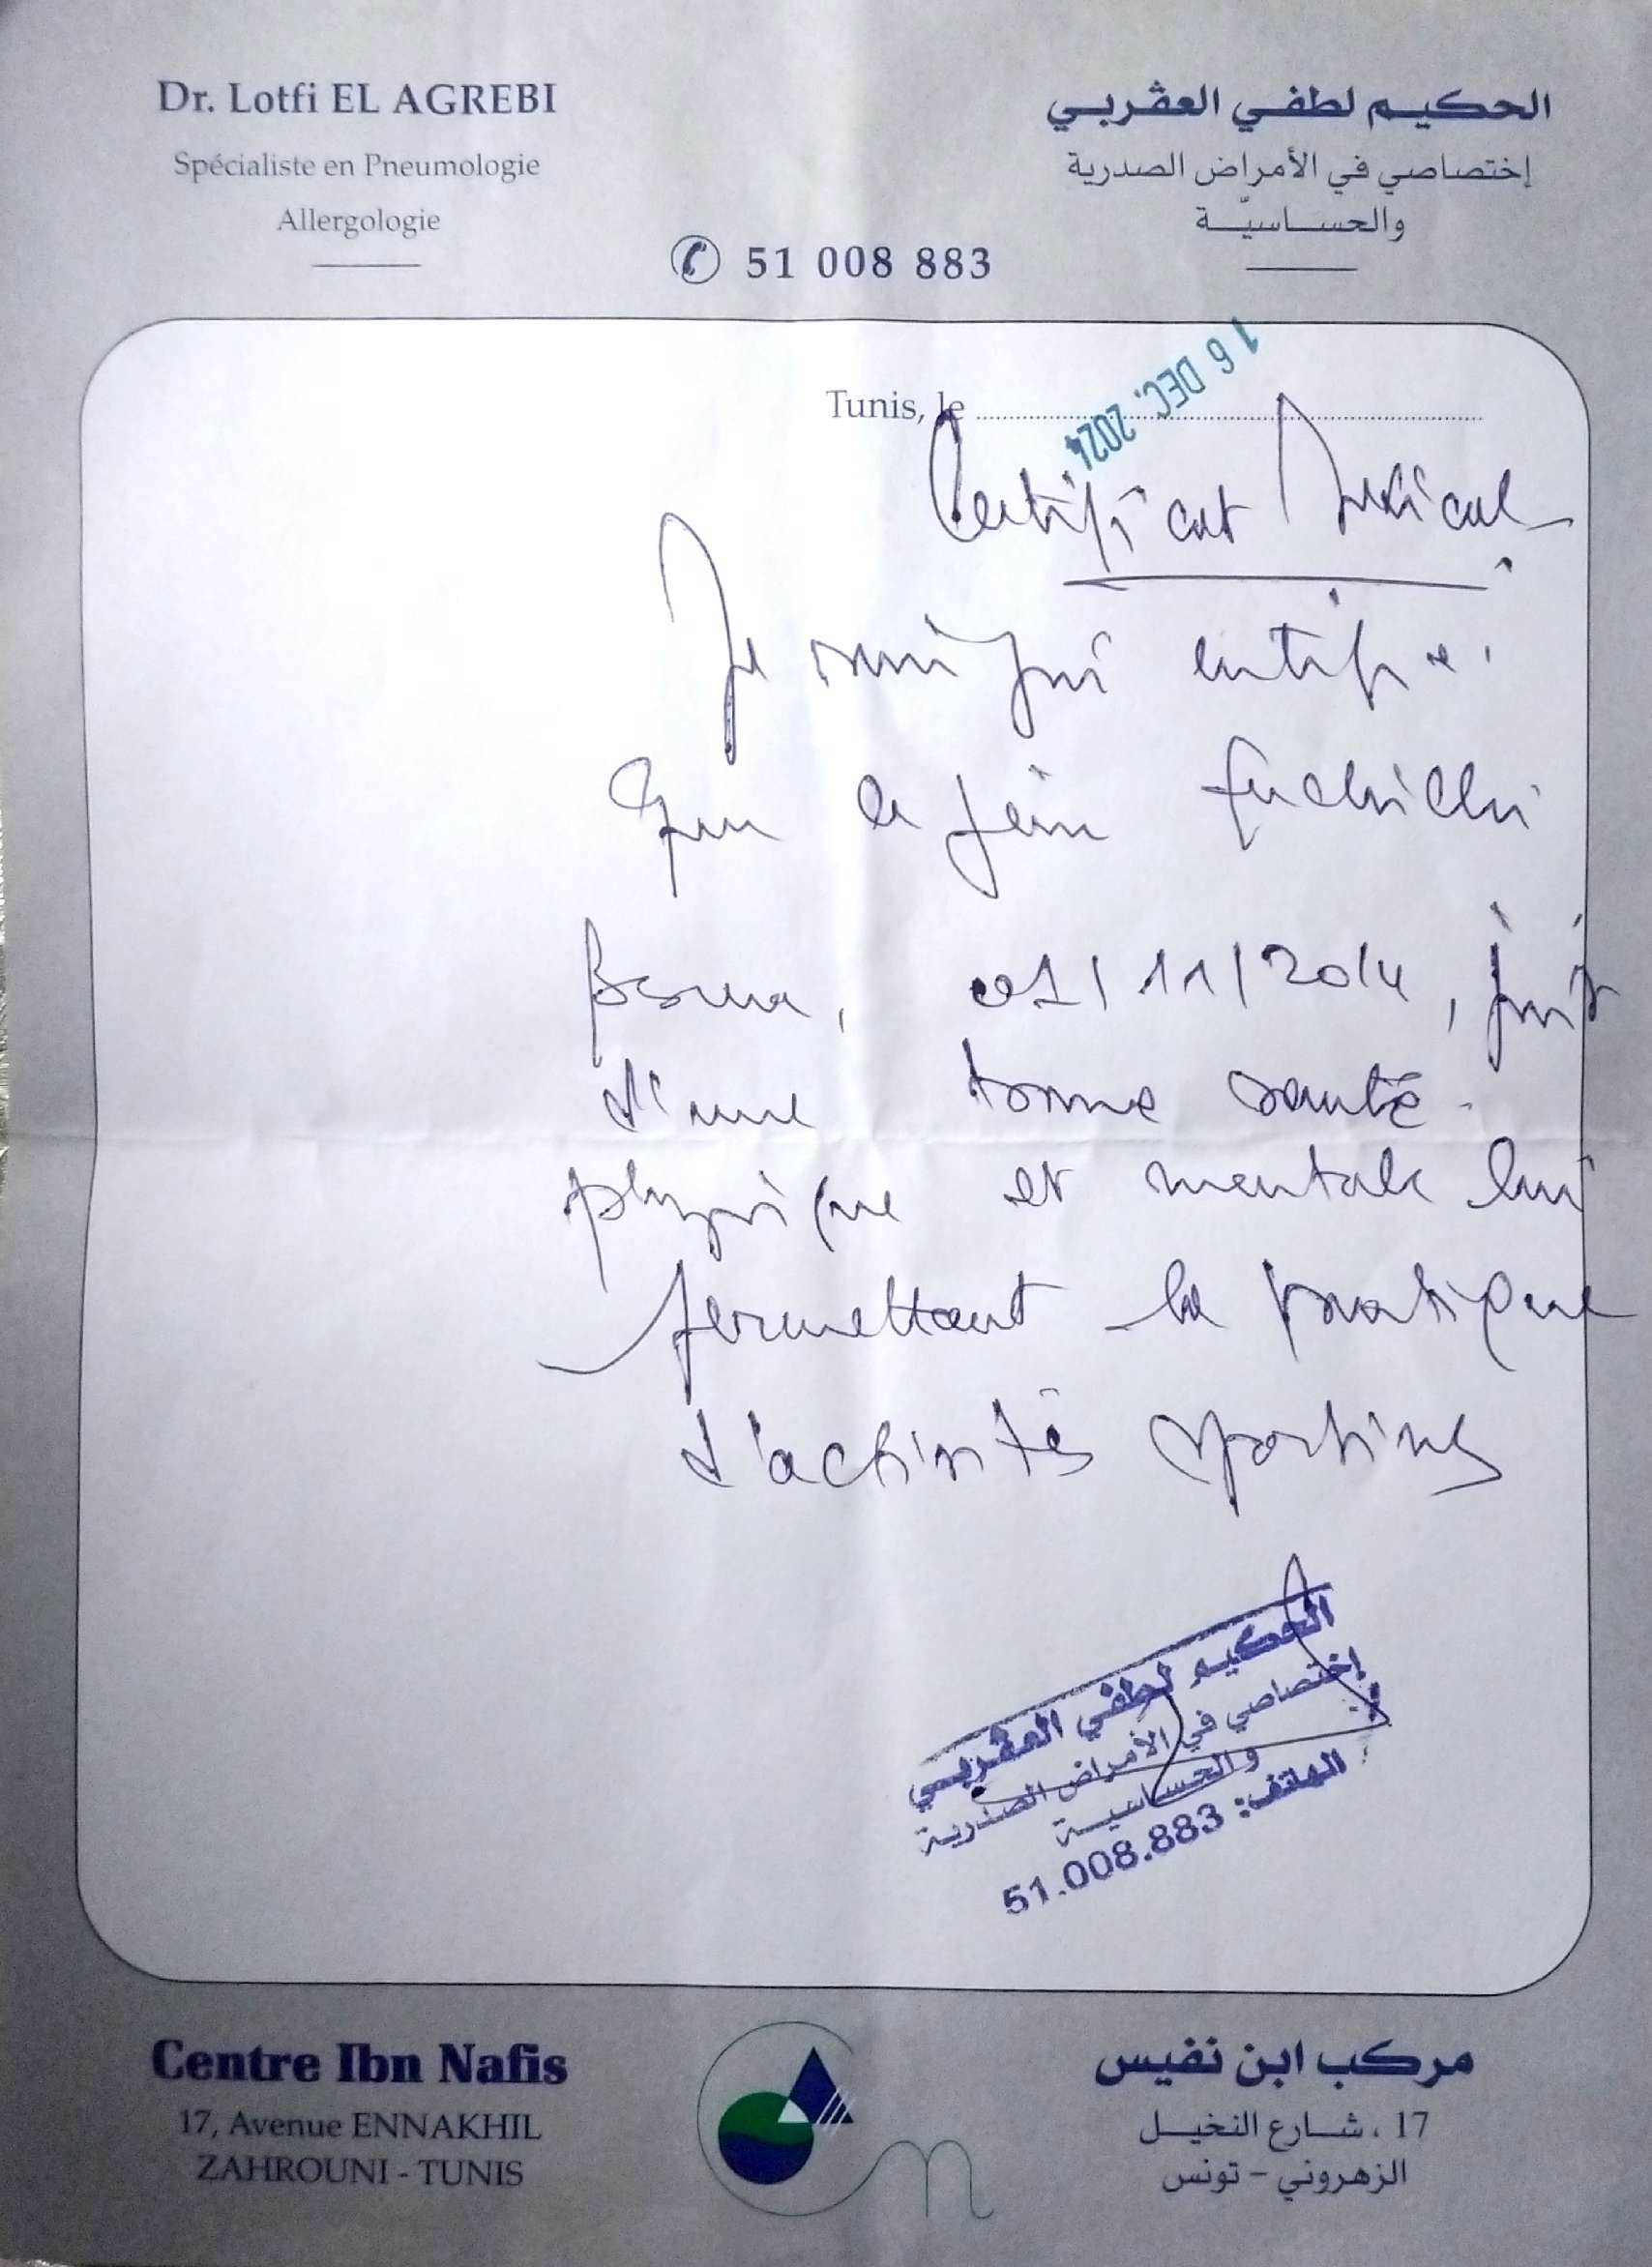 Dr. Lotfi EL AGREBI
Spécialiste en Pneumologie
Allergologie
الحكيم لطفي العڨربي
إختصاصي في الأمراض الصدرية
والحساسيّة
51 008 883
Tunis, le 16 DEC. 2024
Certificat Médical
Je soussigné certifie
que le jeune
01/11/2014, jouit
d'une bonne santé
physique et mentale lui
permettant la pratique
d'activités sportives
الحكيم لطفي العڨربي
إختصاصي في الأمراض الصدرية
والحساسية
الهاتف: 51.008.883
Centre Ibn Nafis
17, Avenue ENNAKHIL
ZAHROUNI - TUNIS
مركب ابن نفيس
17 ، شارع النخيل
الزهروني - تونس